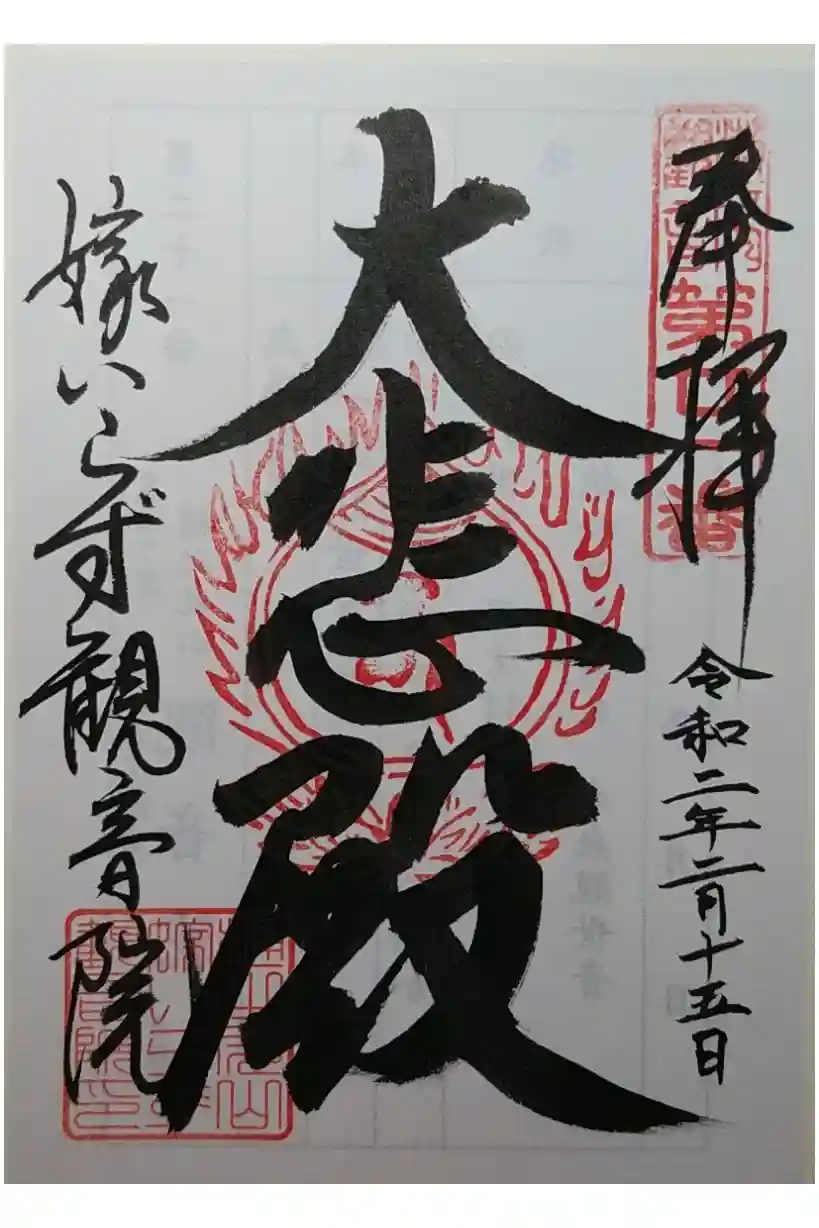 奉拝
令和二年二月十五日
大悲殿
嫁いらず観音院
第廿一番